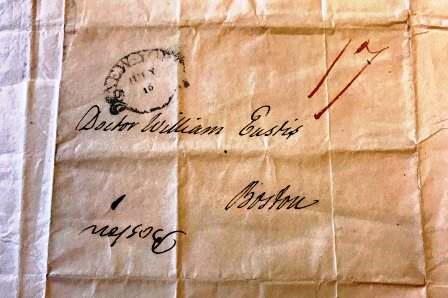 JULY
16
17
Doctor William Eustis
Boston
Boston